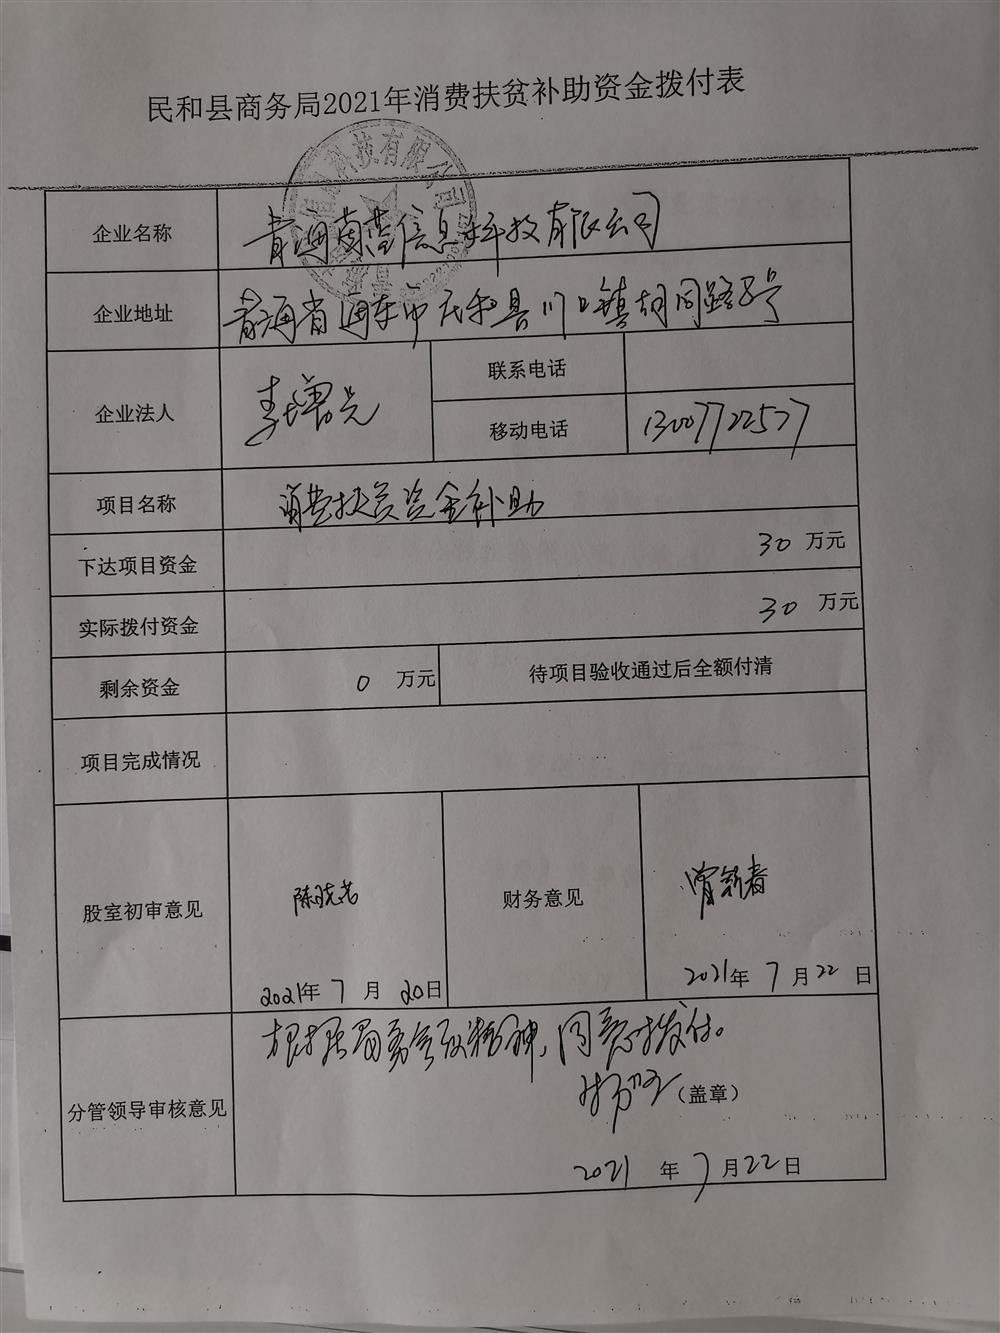 民和县商务局2021年消费扶贫补助资金拨付表
科技有限公司
企业名称 青海南蓝信息科技有限公司
企业地址 青海省海东市民和县川口镇胡同路8号
企业法人 李增元 联系电话
移动电话 13007722577
项目名称 消费扶贫资金补助
下达项目资金 30 万元
实际拨付资金 30 万元
剩余资金 0 万元 待项目验收通过后全额付清
项目完成情况
股室初审意见 陈晓芳 财务意见
2021年 7 月 20日 2021年 7 月 22 日
根据局务会议精神,同意拨付。
分管领导审核意见 (盖章)
2021 年 7 月 22 日